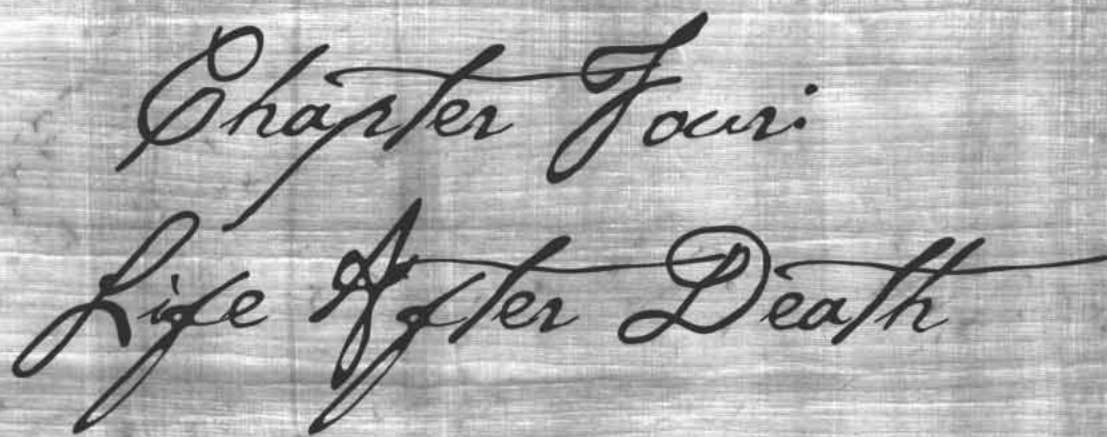 Chapter Four:
Life After Death